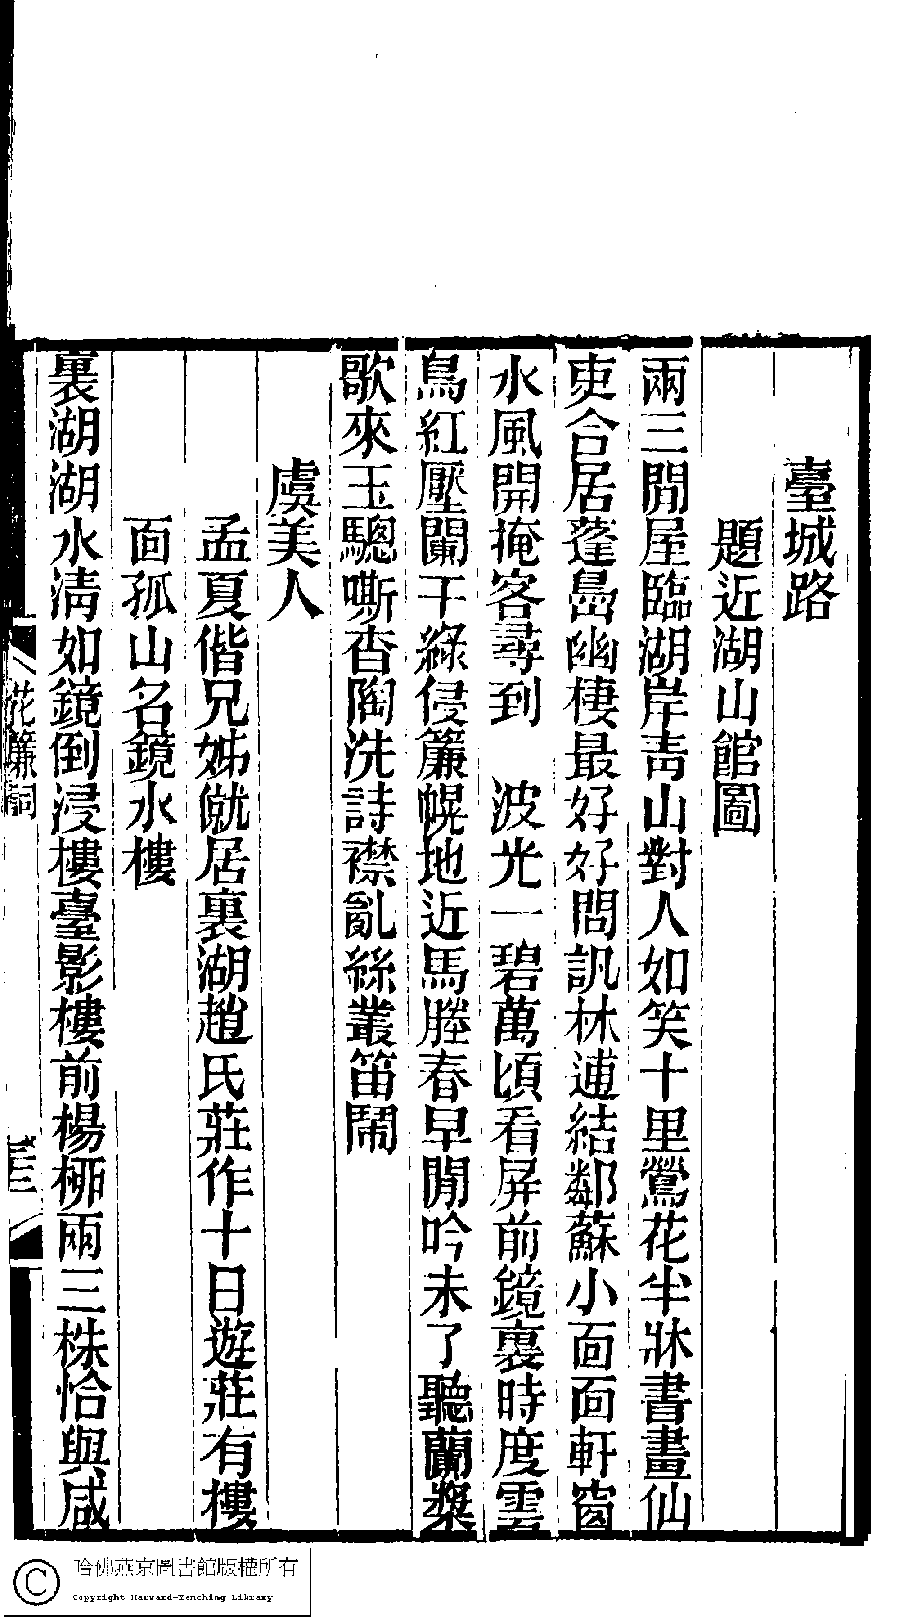 臺城路
題近湖山館圖
兩三閒屋臨湖岸靑山對人如笑十里鶯花半牀書畫仙
吏合居蓬島幽棲最好好問訊林逋結鄰蘇小面面軒窗
水風開掩客尋到　波光一碧萬頃看屏前鏡裏時度雲
鳥紅壓闌干綠侵簾幌地近馬塍春早閒吟未了聽蘭槳
歌來玉驄嘶杳陶洗詩襟亂絲叢笛鬧
虞美人
孟夏偕兄姊僦居裏湖趙氏莊作十日遊莊有樓
面孤山名鏡水樓
裏湖湖水淸如鏡倒浸樓臺影樓前楊柳兩三株恰與咸
花簾詞
三
哈佛燕京圖書館版權所有
Copyright Harvard-Yenching Library